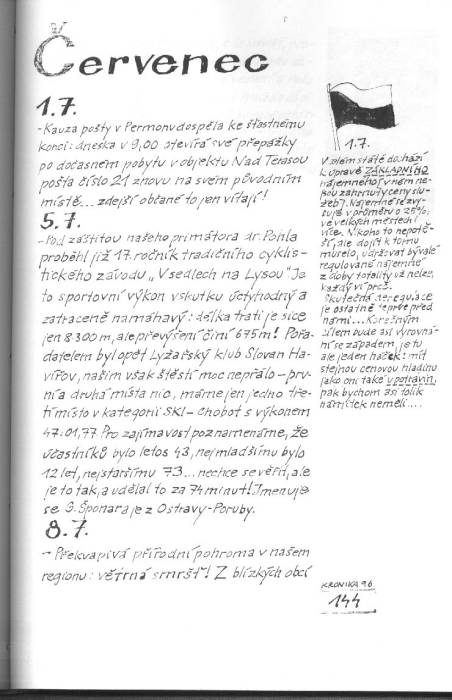 Červenec
1.7.
- Kauza pošty v Permonu dospěla ke šťastnému
konci: dneska v 9,00 otevírá své přepážky
po dočasném pobytu v objektu Nad Terasou
pošta číslo 21 znovu na svém původním
místě... zdejší občané to jen vítají!
5.7.
- Pod záštitou našeho primátora dr. Pohla
proběhl již 17. ročník tradičního cyklis-
tického závodu „V sedlech na Lysou“. Je
to sportovní výkon vskutku úctyhodný a
zatraceně namáhavý: délka trati je sice
jen 8 300 m, ale převýšení činí 675 m! Pořa-
datelem byl opět Lyžařský klub Slovan Ha-
vířov, našim však štěstí moc nepřálo - prv-
ní a druhá místa nic, máme jen jedno tře-
tí místo v kategorii SKI - Chobot s výkonem
47:01,77. Pro zajímavost poznamenáme, že
účastníků bylo letos 43, nejmladšímu bylo
12 let, nejstaršímu 73... nechce se věřit, ale
je to tak, a udělal to za 74 minut! Jmenuje
se J. Šponar a je z Ostravy-Poruby.
8.7.
- Překvapivá přírodní pohroma v našem
regionu: větrná smršť! Z blízkých obcí
1.7.
V celém státě dochází
k úpravě ZÁKLADNÍHO
nájemného (v něm ne-
jsou zahrnuty ceny slu-
žeb). Nájemné se zvy-
šuje v průměru o 25%,
ve velkých městech i
více. Nikoho to nepotě-
ší, ale dojít k tomu
muselo, udržovat bývalé
regulované nájemné
z doby totality už nelze,
každý ví proč.
Skutečná deregulace
je ostatně teprve před
námi... Konečným
cílem bude asi vyrovná-
ní se západem, je tu
ale jeden háček: mít
stejnou cenovou hladinu
jako oni také u potravin,
pak bychom asi tolik
námitek neměli....
KRONIKA 96
144